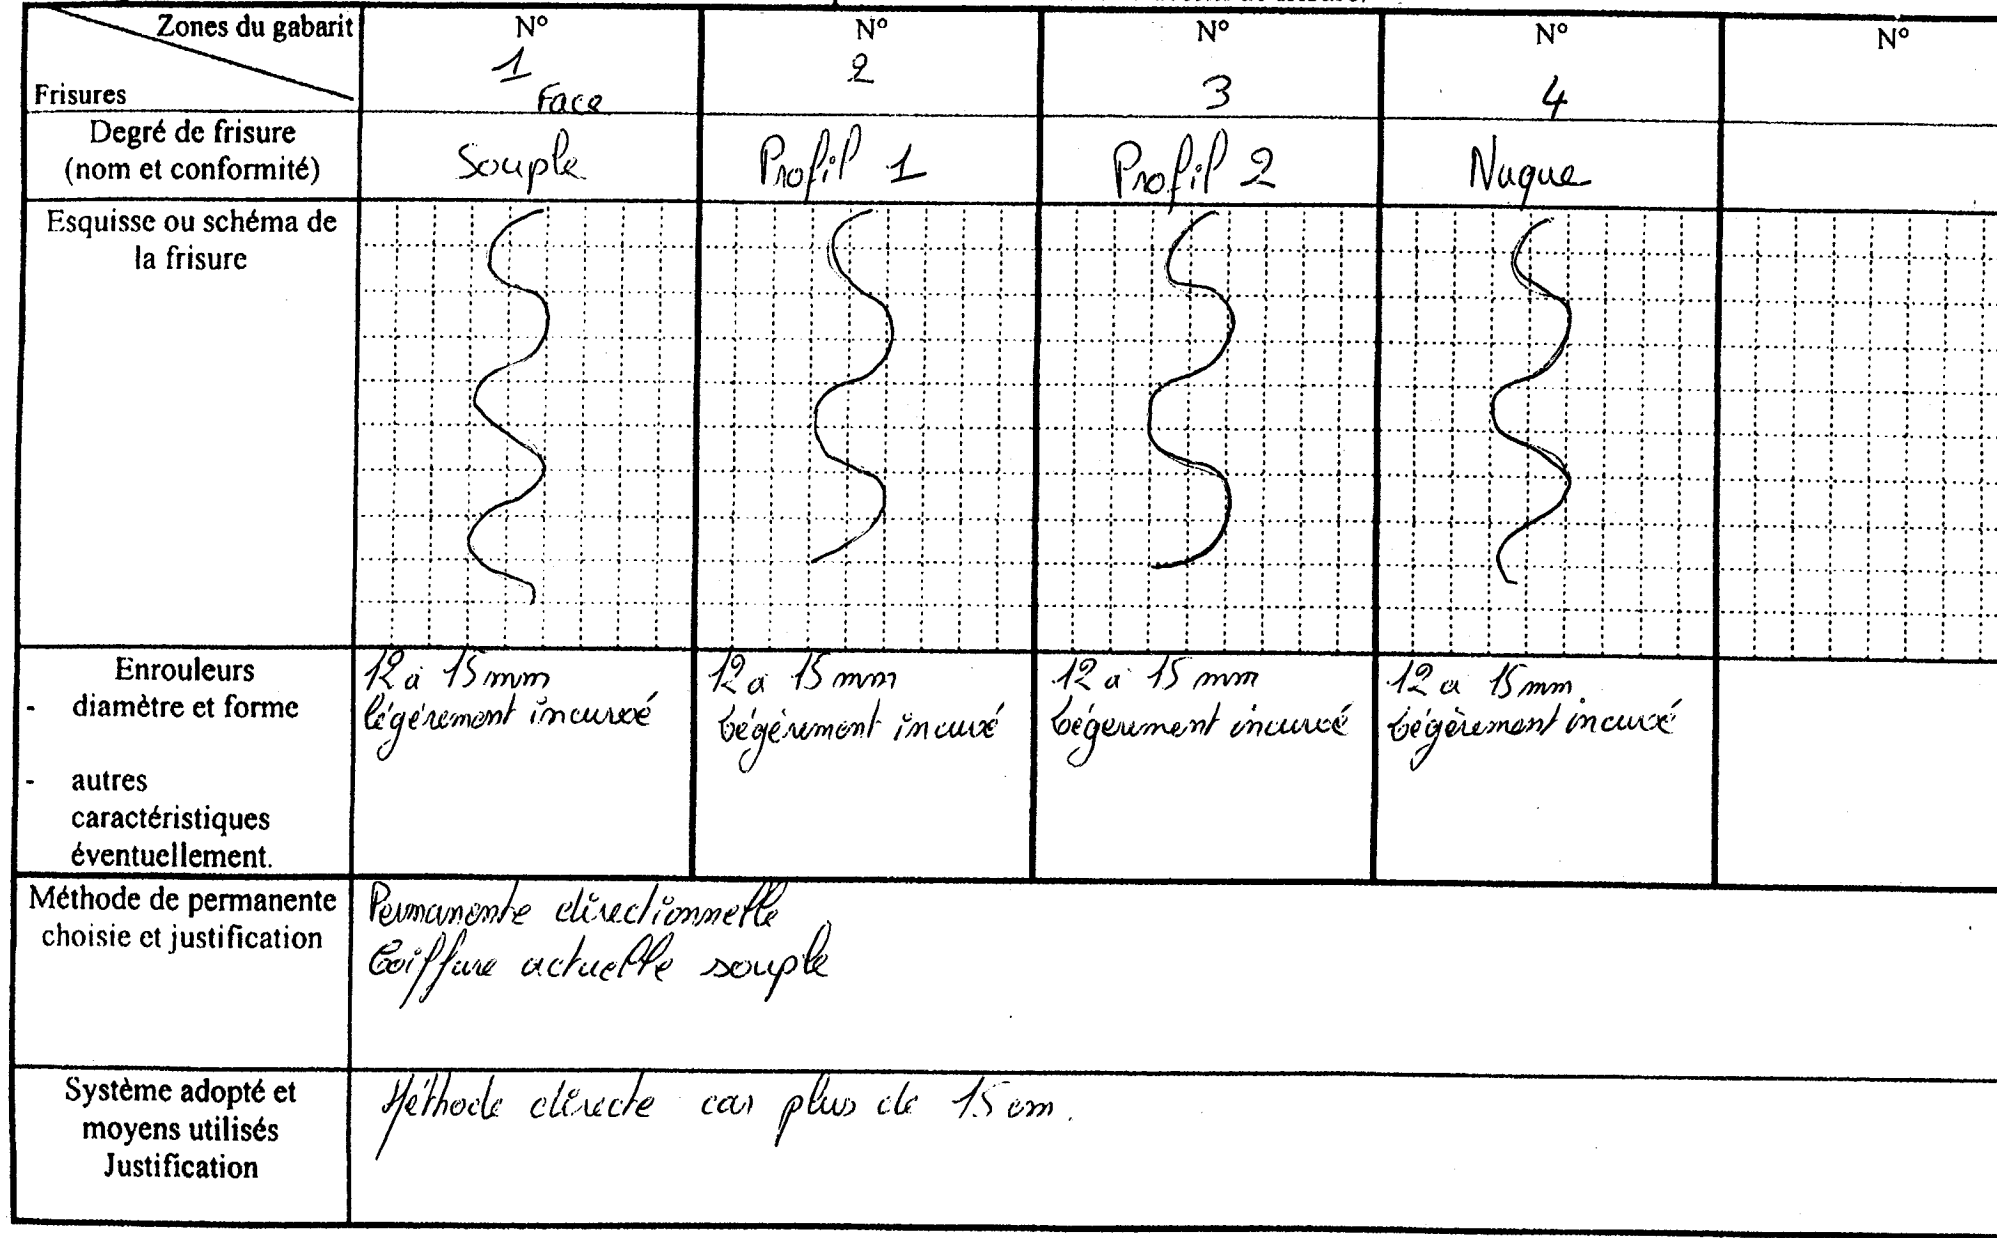 Zones du gabarit
Frisures
N°
1
Face
N°
2
N°
3
N°
4
N°
Degré de frisure
(nom et conformité)
Souple
Profil 1
Profil 2
Nuque
Esquisse ou schéma de
la frisure
Enrouleurs
- diamètre et forme
- autres
caractéristiques
éventuellement.
12 à 15 mm
légèrement incurvé
12 a 15 mm
légèrement incurvé
12 a 15 mm
légerement incurvé
12 a 15 mm
légèrement incurvé
Méthode de permanente
choisie et justification
Permanente directionnelle
Coiffure actuelle souple
Système adopté et
moyens utilisés
Justification
Méthode directe car plus de 15 cm.